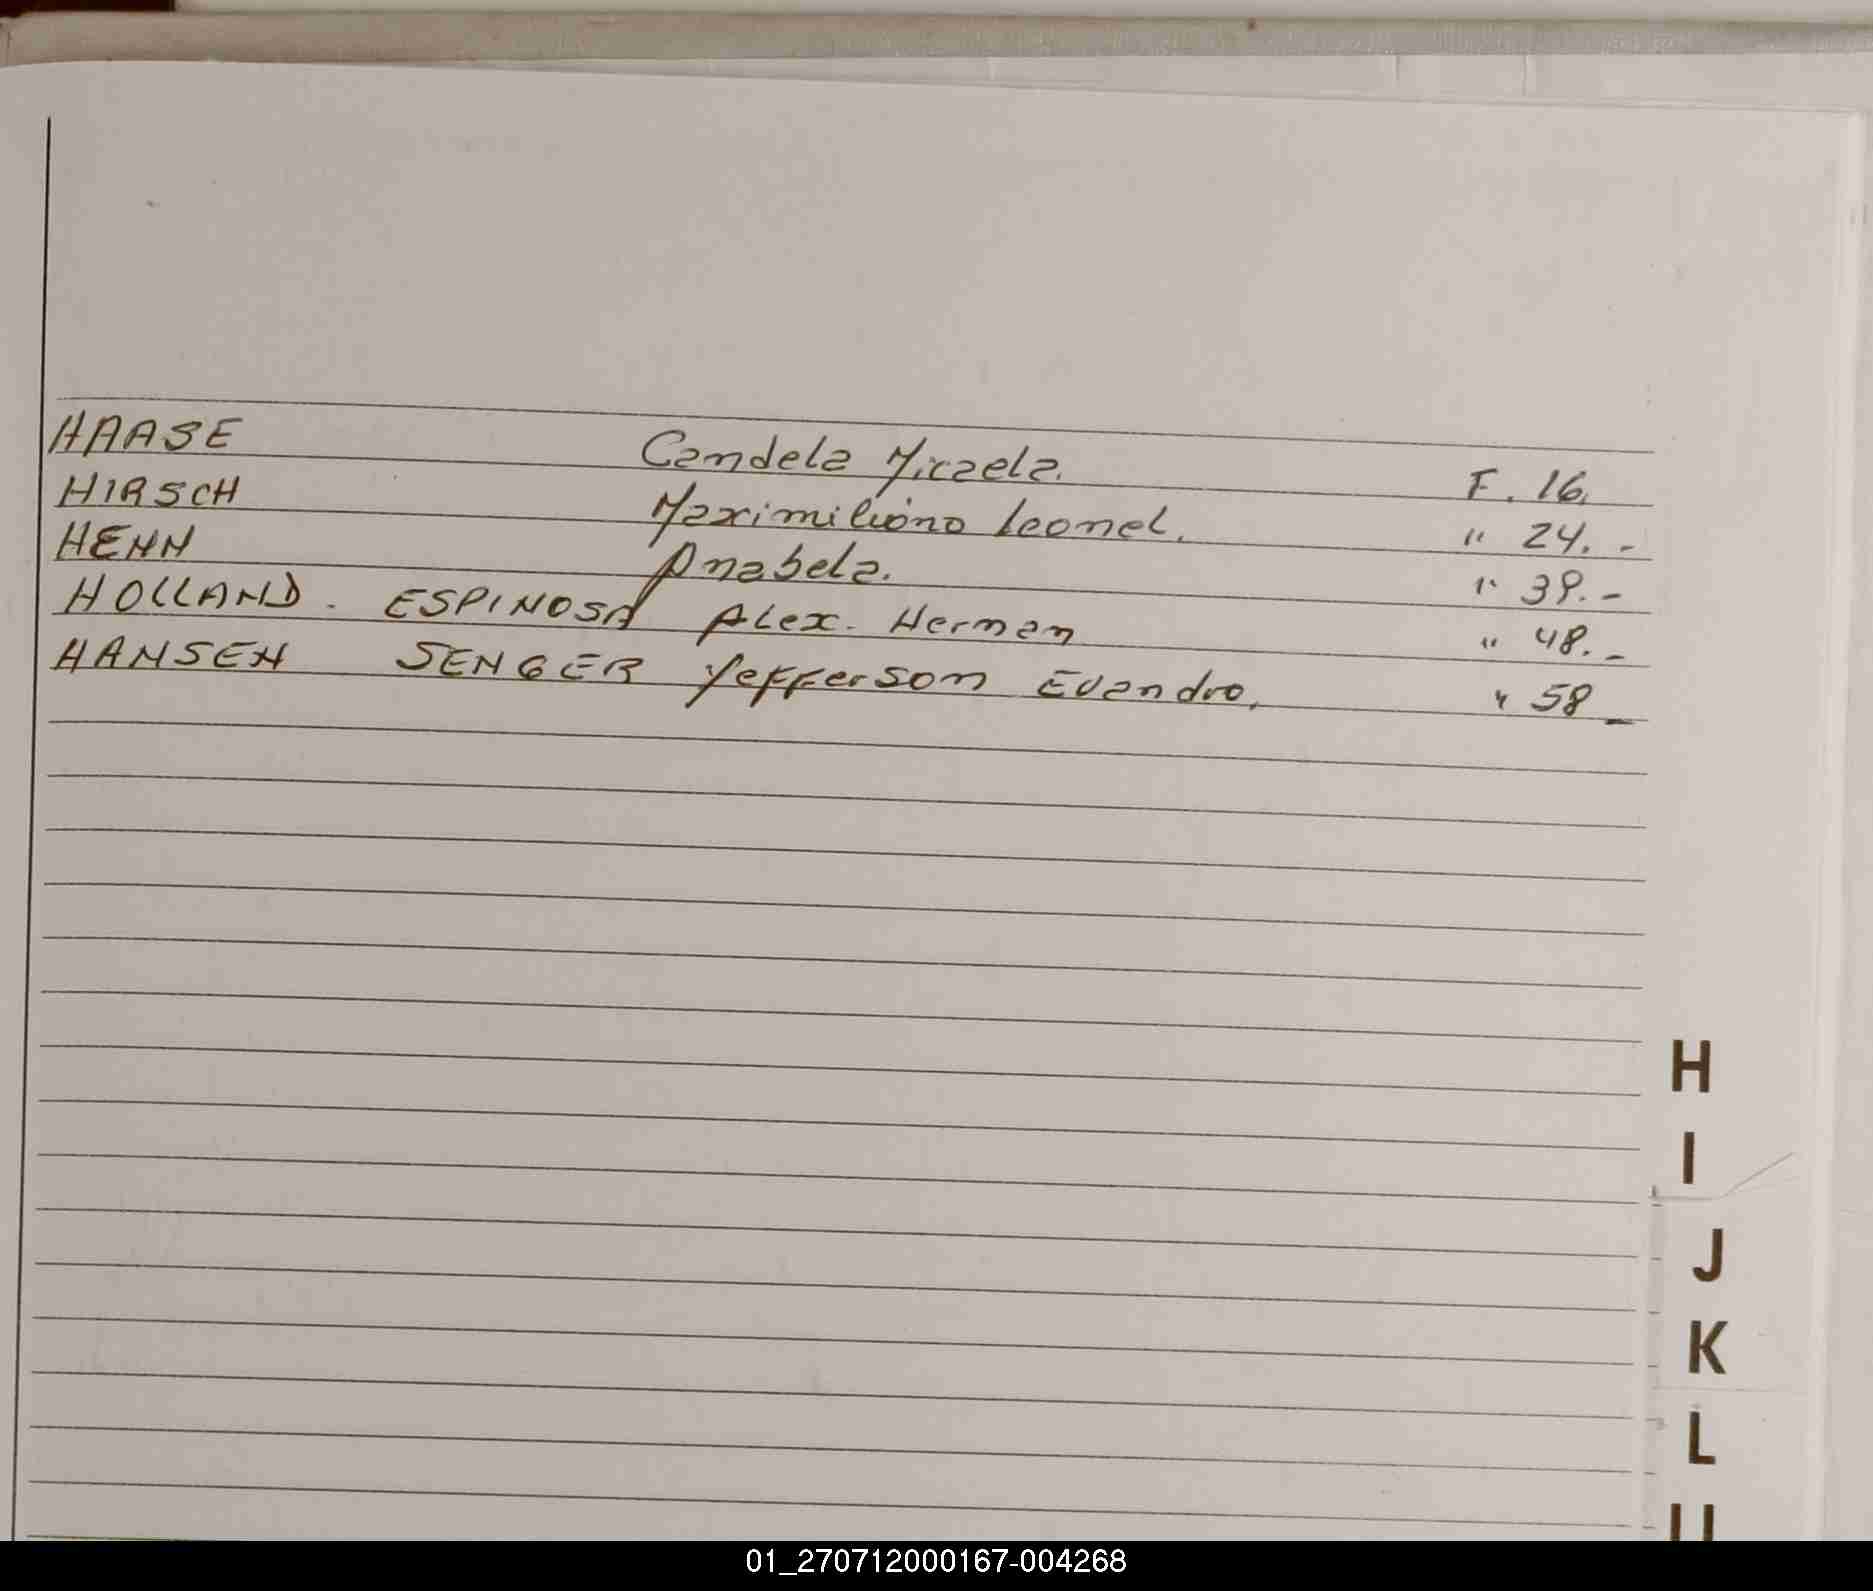 HAASE Candela Micaela. F. 16.
HIRSCH Maximiliano Leonel. " 24. -
HENN Anabela. " 39. -
HOLLAND. ESPINOSA Alex. Hernan " 48. -
HANSEN SENGER Yefferson Evandro. " 58 -
H
I
J
K
L
01_270712000167-004268